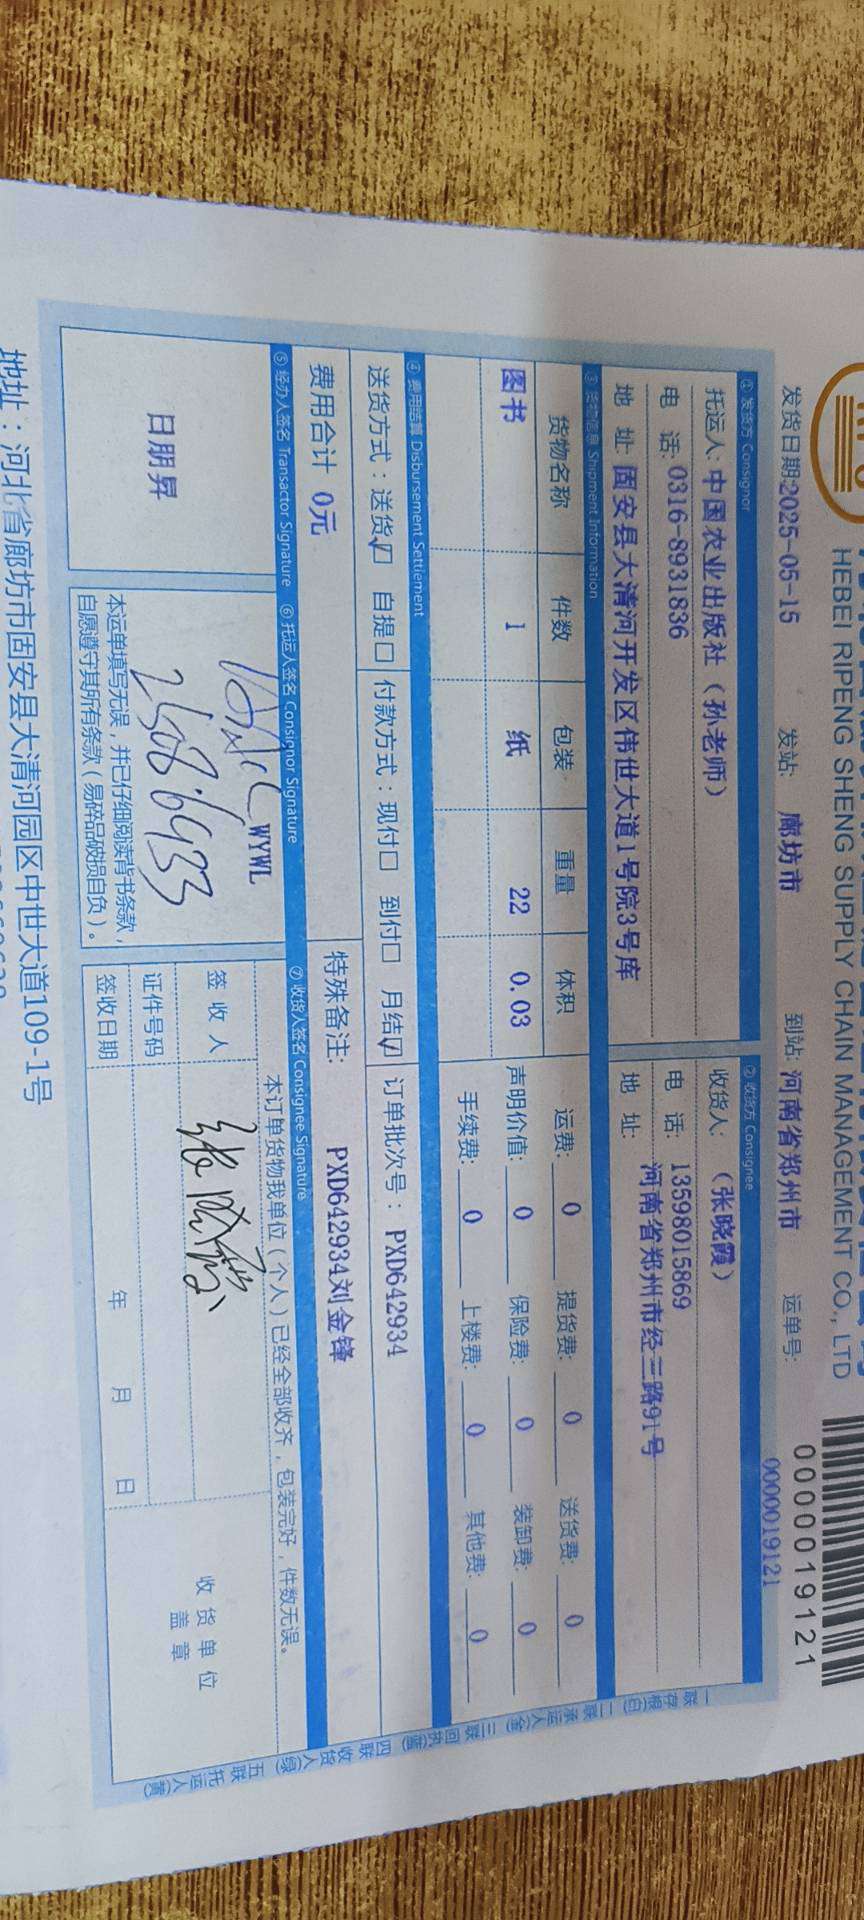 HEBEI RIPENG SHENG SUPPLY CHAIN MANAGEMENT CO., LTD
0000019121
发货日期:2025-05-15 发站: 廊坊市 到站: 河南省郑州市 运单号: 0000019121
① 发货方 Consignor ② 收货方 Consignee
托运人: 中国农业出版社(孙老师) 收货人: (张晓霞)
电 话: 0316-8931836 电 话: 13598015869
地 址: 固安县大清河开发区伟世大道1号院3号库 地 址: 河南省郑州市经三路91号
③ 货物信息 Shipment Information
货物名称 件数 包装 重量 体积 运费: 0 提货费: 0 送货费: 0
图书 1 纸 22 0.03 声明价值: 0 保险费: 0 装卸费: 0
手续费: 0 上楼费: 0 其他费: 0
④ 费用结算 Disbursement Settlement
送货方式:送货☑ 自提□ 付款方式:现付□ 到付□ 月结☑ 订单批次号: PXD642934
费用合计 0元 特殊备注: PXD642934刘金锋
⑤ 经办人签名 Transactor Signature ⑥ 托运人签名 Consignor Signature ⑦ 收货人签名 Consignee Signature
本订单货物我单位(个人)已经全部收齐,包装完好,件数无误。
WYWL
日朋昇
签 收 人
收货单位
盖 章
证件号码
本运单填写无误,并已仔细阅读背书条款,
自愿遵守其所有条款(易碎品破损自负)。
签收日期 年 月 日
一联存根(白) 二联承运人(金) 三联回执(蓝) 四联收货人(绿) 五联托运人(黄)
地址:河北省廊坊市固安县大清河园区中世大道109-1号